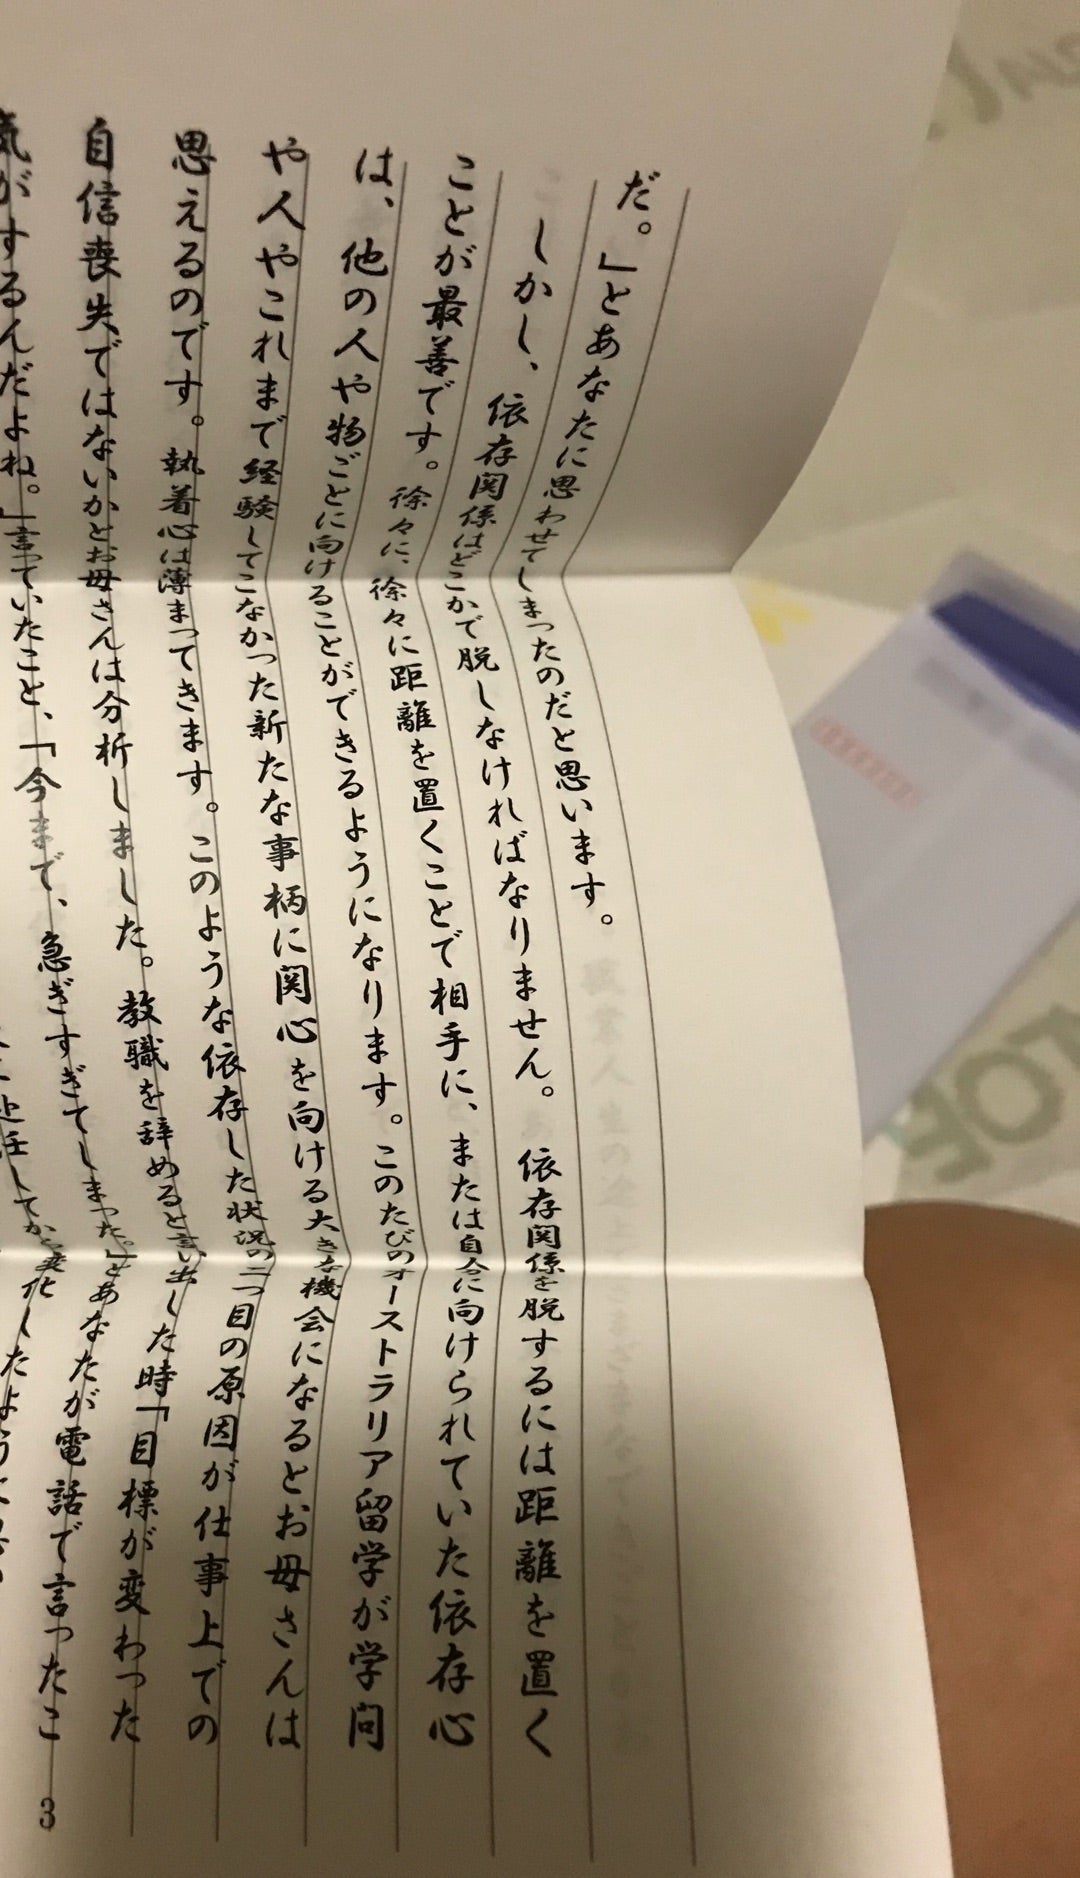 だ。」とあなたに思わせてしまったのだと思います。
しかし、依存関係はどこかで脱しなければなりません。依存関係を脱するには距離を置く
ことが最善です。徐々に、徐々に距離を置くことで相手に、または自分に向けられていた依存心
は、他の人や物ごとに向けることができるようになります。このたびのオーストラリア留学が学問
や人やこれまで経験してこなかった新たな事柄に関心を向ける大きな機会になるとお母さんは
思えるのです。執着心は薄まってきます。このような依存した状況の二つ目の原因が仕事上での
自信喪失ではないかとお母さんは分析しました。教職を辞めると言い出した時「目標が変わった
気がするんだよね。」言っていたこと、「今まで、急ぎすぎてしまった。」とあなたが電話で言ったこ
3